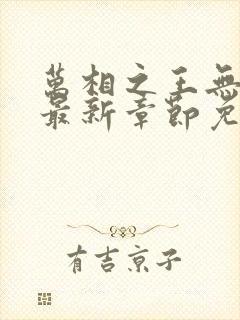 萬相之王無
最新章節免
有吉京子